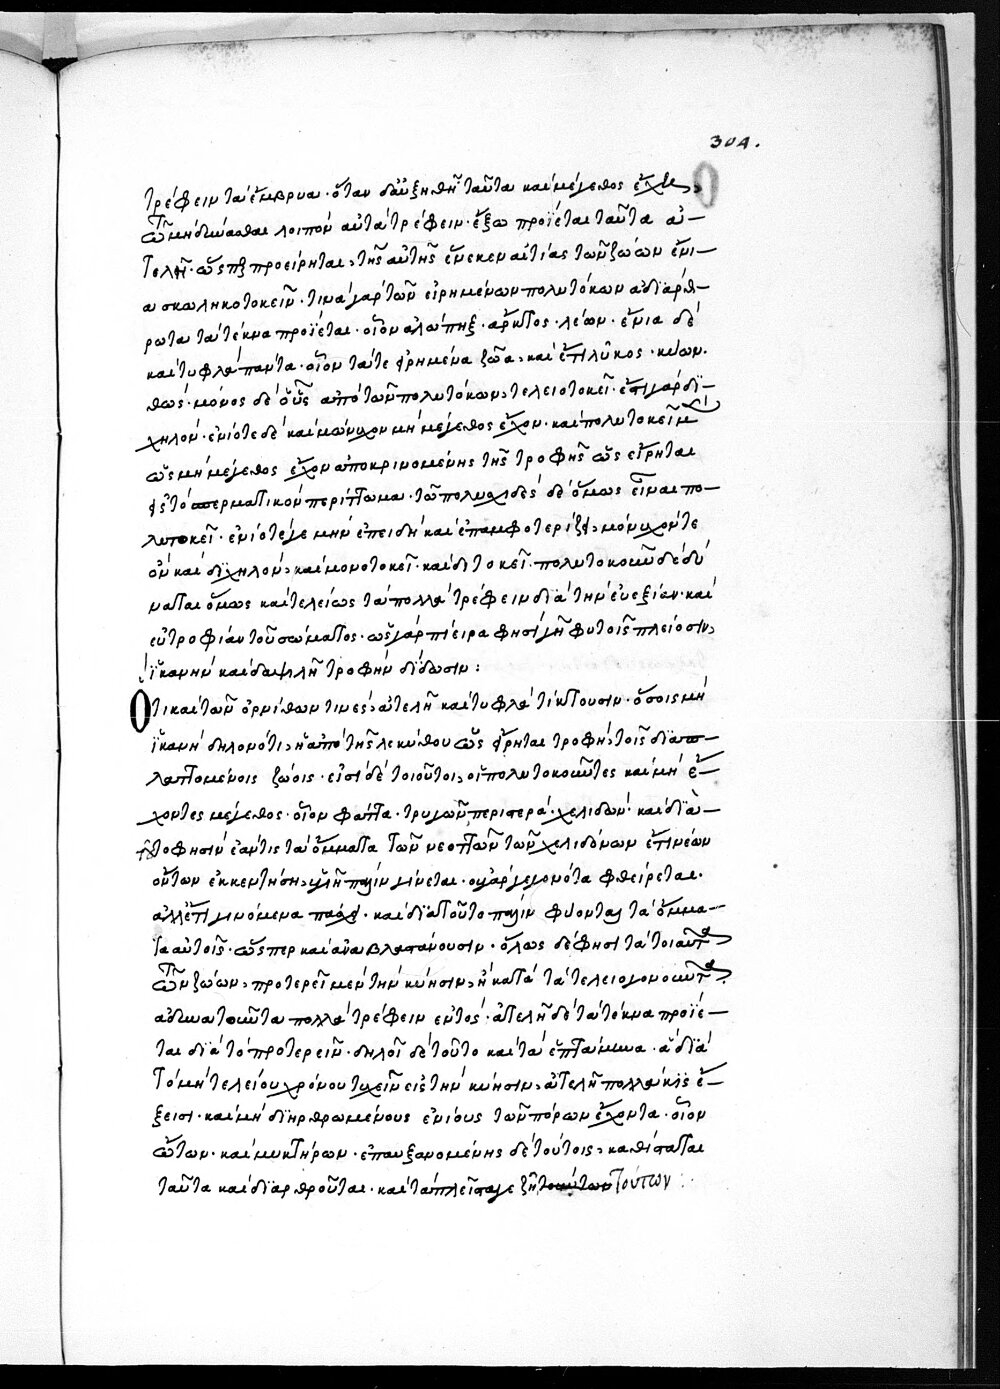 304.
τρέφειν τὰ ἔμβρυα· ὅταν δ' αὐξηθῇ ταῦτα καὶ μέγεθος ἔχῃ,
ὥστε μὴ δύνασθαι λοιπὸν αὐτὰ τρέφειν· ἔξω προΐεται ταῦτα ἀ-
τελῆ· ὥσπερ προείρηται, τῆς αὐτῆς ἕνεκεν αἰτίας τῶν ζώων ἔνι-
α σκωληκοτοκεῖν· τινὰ γὰρ τῶν εἰρημένων πολυτόκων ἀδιάρθ-
ρωτα τὰ τέκνα προΐεται· οἷον ἀλώπηξ· ἄρκτος· λέων· ἔνια δὲ
καὶ τυφλὰ πάντα· οἷον τά τε εἰρημένα ζῶα, καὶ ἔτι λύκος· κύων.
θώς· μόνος δὲ ὁ ὗς ἀπὸ τῶν πολυτόκων, τελειοτοκεῖ· ἔστι γὰρ δϊ-
χηλόν· ἐνίοτε δὲ καὶ μώνυχον μὴ μέγεθος ἔχον· καὶ πολυτοκεῖ μὲν
ὡς μὴ μέγεθος ἔχον ἀποκρινομένης τῆς τροφῆς ὡς εἴρηται
εἰς τὸ σπερματικὸν περίττωμα· τῶ πολυσχιδὲς δὲ ὅμως εἶναι πο-
λυτοκεῖ· ἐνίοτέ γε μὴν ἐπειδὴ καὶ ἐπαμφοτερίζει, μώνυχόν τε
ὂν καὶ δίχηλον, καὶ μονοτοκεῖ· καὶ διτοκεῖ· πολυτοκοῦν δὲ δύ
ναται ὅμως καὶ τελείως τὰ πολλὰ τρέφειν διὰ τὴν εὐεξίαν· καὶ
εὐτροφίαν τοῦ σώματος· ὡς γὰρ πίειρα φησὶ γῆ φυτοῖς πλείοσιν,
ἱκανὴν καὶ δαψιλῆ τροφὴν δίδωσιν:
Ὅτι καὶ τῶν ὀρνίθων τινές, ἀτελῆ καὶ τυφλὰ τίκτουσιν· ὅσοις μὴ
ἱκανὴ δηλονότι, ἡ ἀπὸ τῆς λεκύθου ὡς εἴρηται τροφὴ, τοῖς διαπ-
λαττομένοις ζώοις· εἰσὶ δὲ τοιοῦτοι, οἱ πολυτοκοῦντες καὶ μὴ ἔ-
χοντες μέγεθος· οἷον φάττα· τρυγὼν περιστερά· χελιδών· καὶ διὰ
τοῦτο φησὶν ἐάν τις τὰ ὄμματα τῶν νεοττῶν τῶν χελιδόνων ἔτι νέων
ὄντων ἐκκεντήσῃ, ὑγιῆ πάλιν γίνεται· οὐ γὰρ γεγονότα φθείρεται.
ἀλλ' ἔτι γινόμενα· καὶ διὰ τοῦτο πάλιν φύονται τὰ ὄμμα-
τα αὐτοῖς· ὥσπερ καὶ ἀναβλαστάνουσιν· ὅλως δέ φησι τὰ τοιαῦτα
τῶν ζώων, προτερεῖ μὲν τὴν κύησιν, ἢ κατὰ τὰ τελειογονοῦντα.
ἀδυνατοῦντα πολλὰ τρέφειν ἐντός· ἀτελῆ δὲ τὰ τέκνα προΐε-
ται διὰ τὸ προτερεῖν· δηλοῖ δὲ τοῦτο καὶ τὰ ἑπτάμηνα· ἃ διὰ
τὸ μὴ τελείου χρόνου τυχεῖν εἰς τὴν κύησιν, ἀτελῆ πολλάκις ἔ-
ξεισι· καὶ μὴ διηρθρωμένους ἐνίους τῶν πόρων ἔχοντα· οἷον
ὤτων· καὶ μυκτήρων· ἐπαυξανομένης δὲ τούτοις, καθίσταται
ταῦτα καὶ διαρθροῦται· καὶ τὰ πλεῖστά γε ζῆ τούτων: